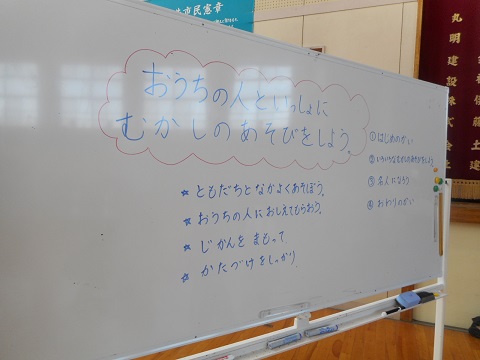 市民憲章
おうちの人といっしょに
むかしのあそびをしよう。
★ ともだちとなかよくあそぼう。
★ おうちの人におしえてもらおう。
★ じかんをまもって
★ かたづけをしっかり
①はじめのかい
②いろいろなむかしのあそびをしよう
③名人になろう
④おわりのかい
丸明建設株式会社